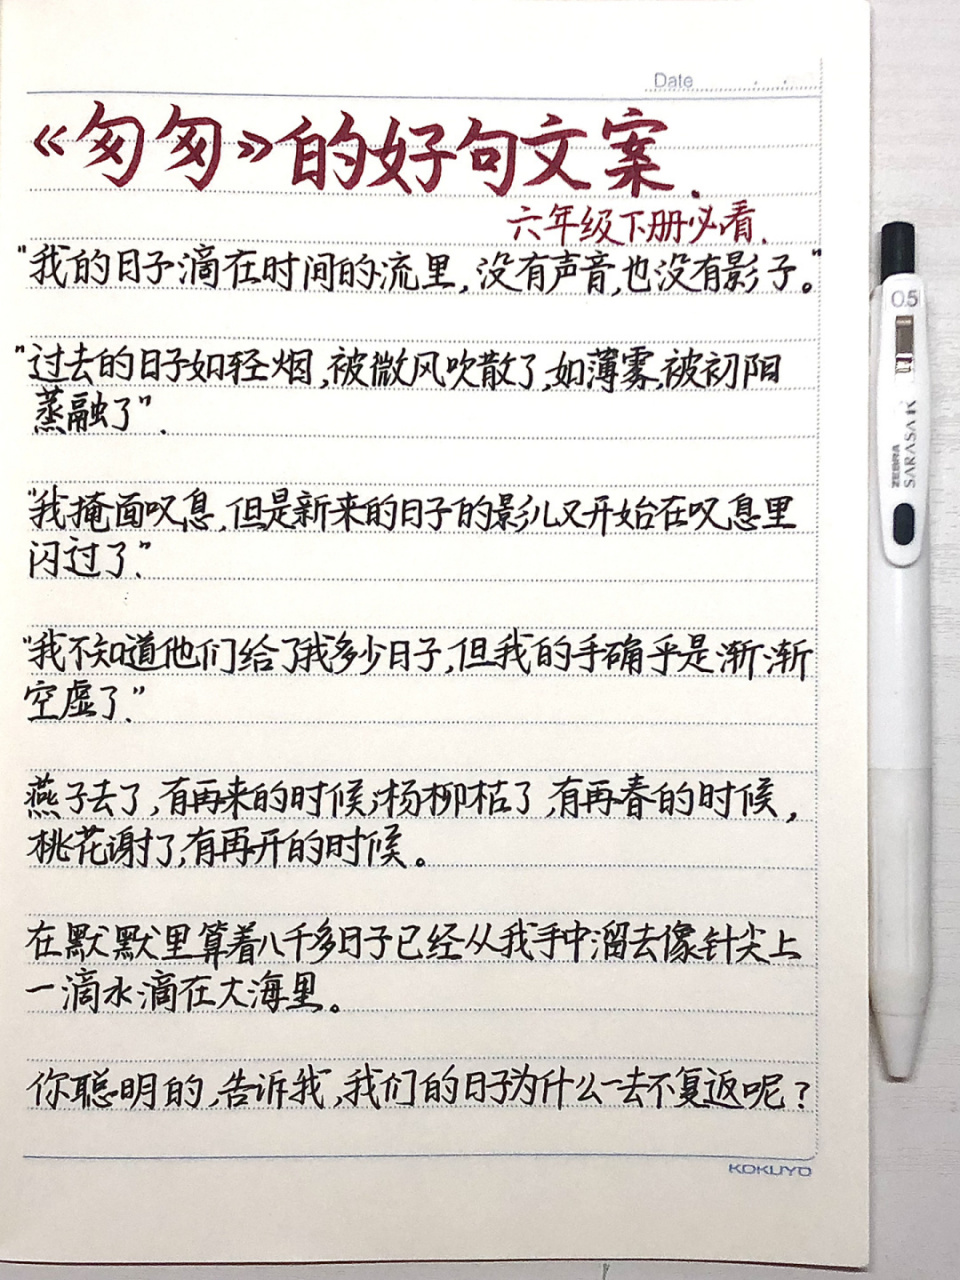 Date
《匆匆》的好句文案.
六年级下册必看.
"我的日子滴在时间的流里,没有声音,也没有影子。"
"过去的日子如轻烟,被微风吹散了,如薄雾,被初阳
蒸融了".
"我掩面叹息,但是新来的日子的影儿又开始在叹息里
闪过了."
"我不知道他们给了我多少日子,但我的手确乎是渐渐
空虚了."
燕子去了,有再来的时候;杨柳枯了,有再春的时候,
桃花谢了,有再开的时候。
在默默里算着八千多日子已经从我手中溜去像针尖上
一滴水滴在大海里。
你聪明的,告诉我,我们的日子为什么一去不复返呢?
KOKUYO
0.5
ZEBRA
SARASA K